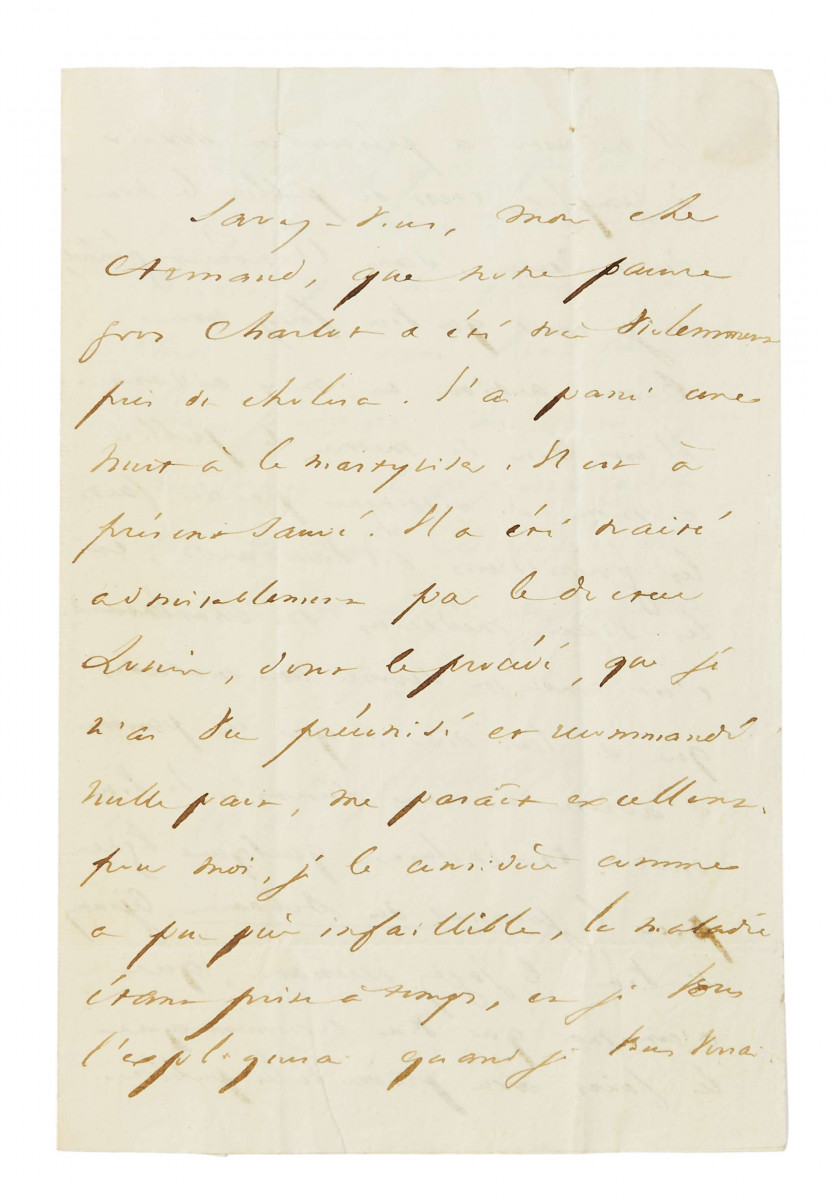 Savez-vous, mon cher
Armand, que notre pauvre
gros Charlot a été très violemment
pris du choléra. J'ai passé une
nuit à le martyriser. Il est à
présent sauvé. Il a été traité
admirablement par le docteur
dont le procédé, que je
n'ai vu préconisé et recommandé
nulle part, me paraît excellent.
pour moi, je le considère comme
a peu près infaillible, la maladie
étant prise à temps, et je vous
l'expliquerai quand je vous verrai.